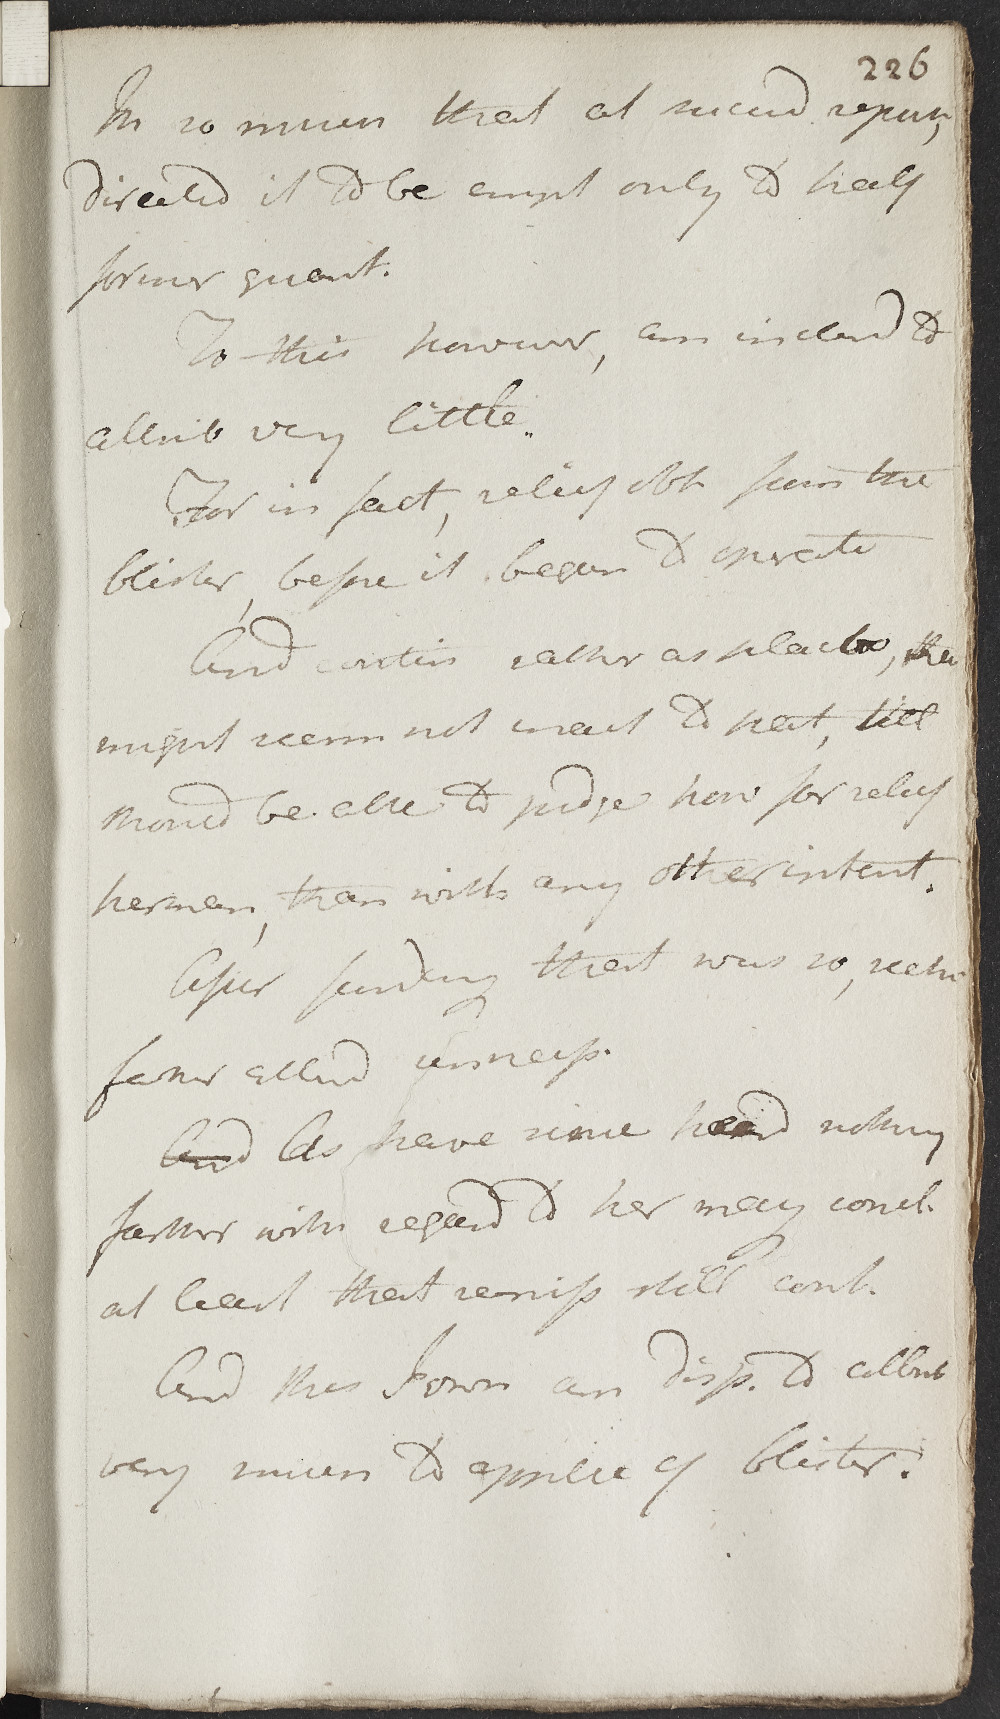 226
In so much that at second report,
directed it to be empl only to half
former quant.
To this however, am inclind to
attrib very little.
For in fact, relief obt from the
blister, before it began to operate
And contin rather as placebo, that
might seem not meant to neat, till
should be able to judge how far relief
perman, than with any other intent.
After finding that was so,
farther attend unnecess.
And As have since heard nothing
farther with regard to her may concl.
at least that remiss still cont.
And this I own am disp. to attrib
very much to applic of blister.